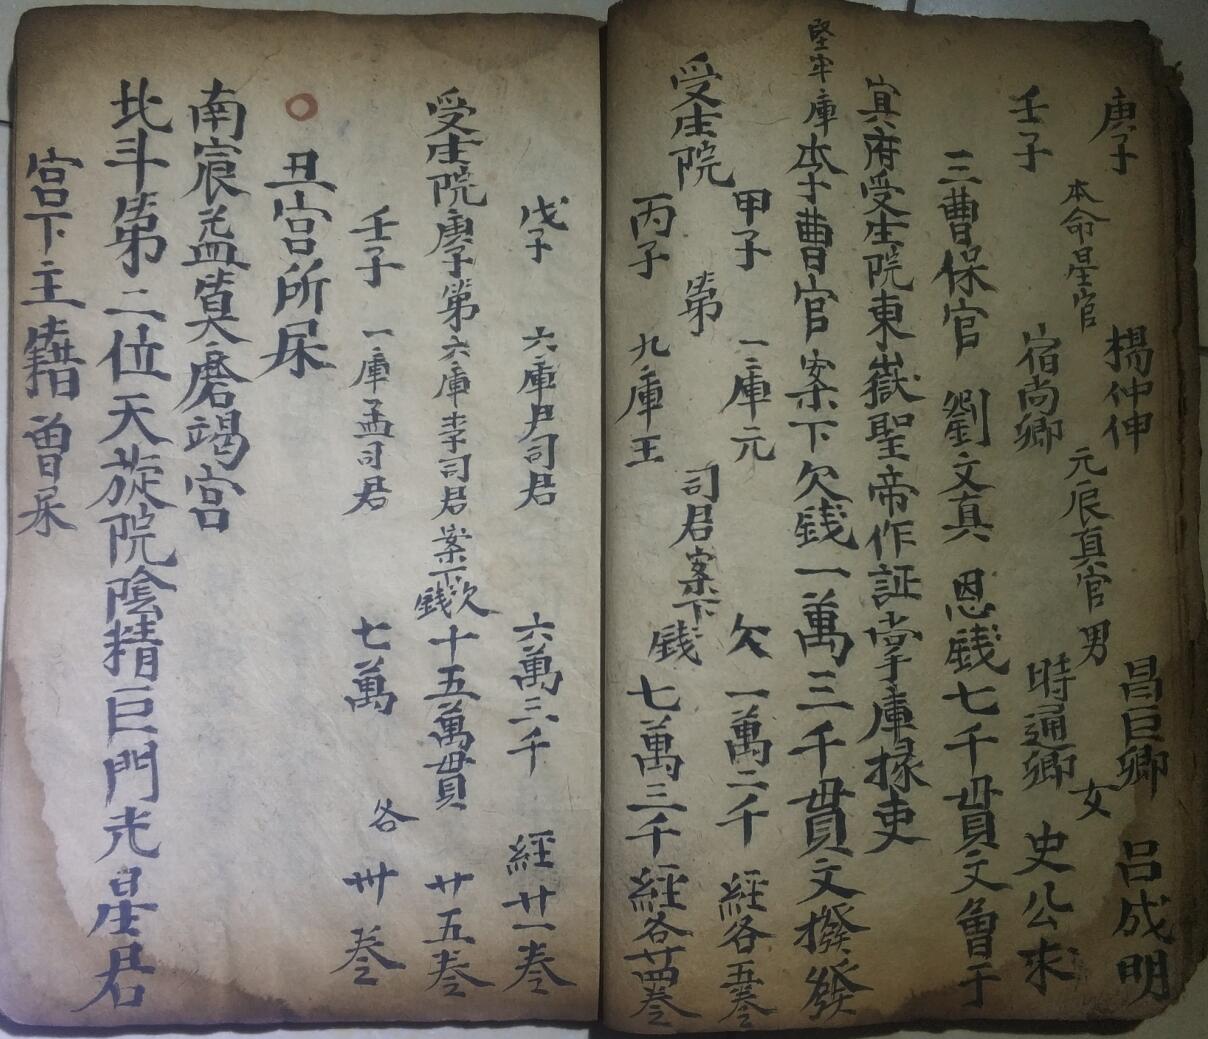 庚子 楊仲伸 昌巨卿 呂成明
本命星官 元辰真官 男 女
壬子 宿尚卿 時通卿 史公來
三曹保官 劉文真 恩錢七千貫文
冥府受生院東嶽聖帝作証掌庫掾吏
堅牢庫本子曹官案下欠錢一萬三千貫文撥發
甲子 一庫元 欠一萬二千 經各五卷
受生院 第 司君案下錢
丙子 九庫王 七萬三千 經各廿四卷
戊子 六庫尹司君 六萬三千 經廿一卷
受生院庚子第六庫李司君案下欠錢十五萬貫 各廿五卷
壬子 一庫孟司君 七萬 卅卷
丑宮所屎
南宸益算磨竭宮
北斗第二位天旋院陰精巨門光星君
宮下主籍曾屎